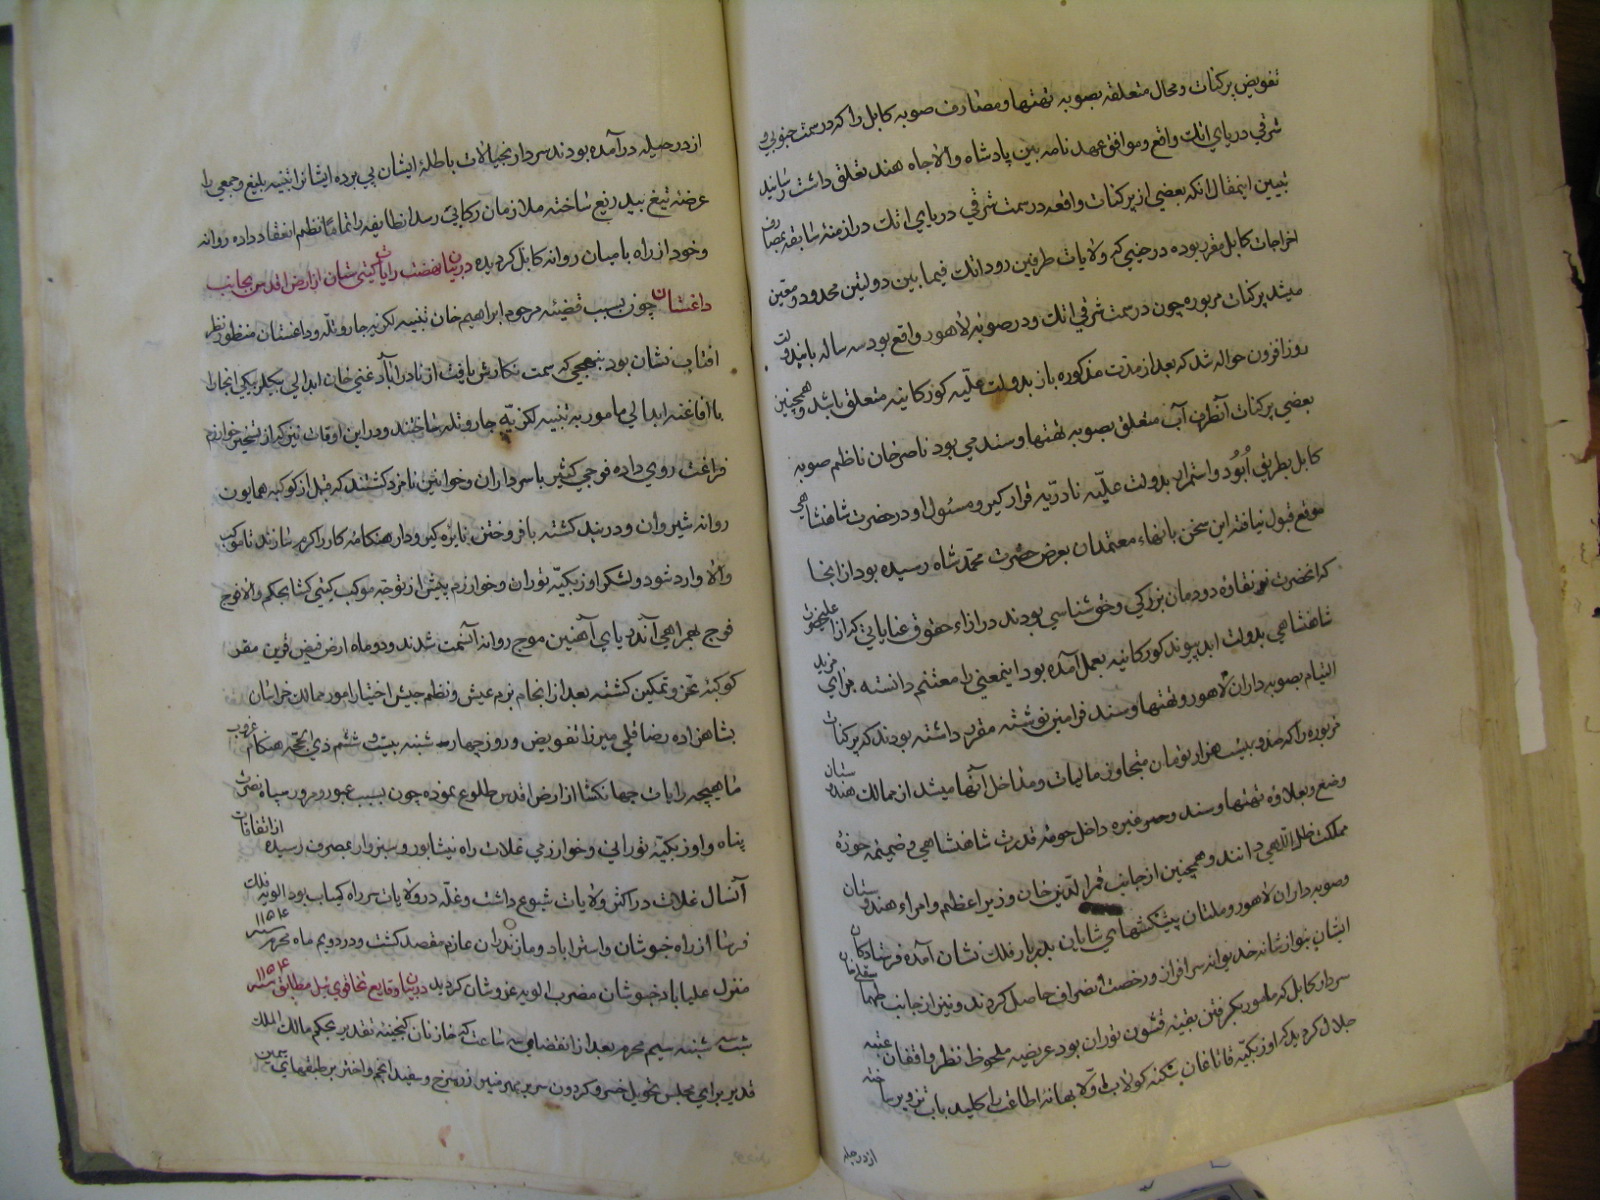 تفویض پرکنات و محال متعلقه بصوبه تهتها و مصارف صوبه کابل را که در سمت جنوبی و
شرقی دریای اتک واقع و موافق عهدنامه بین پادشاه والاجاه هند تعلق داشت رسانید
تبیین اینمقال انکه بعضی از پرکنات واقعه در سمت شرقی دریای اتک در ازمنه سابقه بمصارف
اخراجات کابل مقرر بوده در حینی که ولایات طرفین رود اتک فیما بین دولتین محدود و معین
میشد پرکنات مزبوره چون در سمت شرقی اتک و در صوبه لاهور واقع بود سه ساله باینده دولت
روز افزون حواله شد که بعد از مدت مذکوره باز بدولت علیه کورکانیه متعلق باشد و همچنین
بعضی پرکنات آنطرف آب متعلق بصوبه تهتها و سند می بود ناصر خان ناظم صوبه
کابل بطریق ابود و استمرار بدولت علیه نادریه قرار کیر و مسئول او در حضرت شاهنشاهی
موقع قبول نیافته این سخن بانهاء معتمدان بعرض حضرت محمد شاه رسیده بود از انجا
که انحضرت نیز نقاوه دودمان بزرکی و خوش شناسی بودند در ازاء حقوق عنایاتی که از اعلیحضرت
شاهنشاهی بدولت ابد پیوند کورکانیه بعمل آمده بود اینمعنی را مغتنم دانسته برای مزید
التیام بصوبه داران لاهور و تهتها و سند فرامین نوشته مقرر داشته بودند که پرکنات
مزبوره را که صد و بیست هزار تومان متجاوز مالیات و مداخل آنها میشد از ممالک هندوستان
وضع و بعلاوه تهتها و سند و غیره داخل حوضه قدرت شاهنشاهی و ضمیمه حوزه
مملکت ظل اللهی دانند و همچنین از جانب قمر الدین خان وزیر اعظم و امراء هندوستان
و صوبه داران لاهور و ملتان پیشکشهای شایان بدربار فلک نشان آمده فرستادکان
ایشان بنوازشات خدیوانه سرافراز و رخصت انصراف حاصل کردند و نیز از جانب طهماسقلی خان
سردار کابل که مامور بکرفتن بقیه قشون توران بود عریضه ملحوظ نظر واقفان عتبه
جلال کردید که اوزبکیه قاتاغان یکنه کولاب اولا بهانه اطاعت را کلید باب تزویر ساخته
از در حیله
از در حیله درآمده بودند سردار بخیالات باطله ایشان پی برده ایشانرا تنبیه بلیغ و جمعی را
عرضه تیغ بیدریغ ساخته ملازمان رکابی رسد انطایفه را تماما نظم انعقاد داده روانه
و خود از راه بامیان روانه کابل کردیده در بیان نهضت رایات کیتی ستان از ارض اقدس بجانب
داغستان چون بسبب قضیه مرحوم ابراهیم خان تنبیه لکزیه جار و تله و داغستان منظور نظر
افتاب نشان بود بنهجی که سمت نکارش یافت از نادرآباد غنی خان ابدالی بیکلربیکی انجا را
با افاغنه ابدالی مامور به تنبیه لکزیه جار و تله ساختند و در این اوقات نیز که از تسخیر خوارزم
فراغت روی داده فوجی کثیر با سرداران و خوانین نامزد کشتند که قبل از کوکبه همایون
روانه شیروان و دربند کشته بافروختن نایره کیر و دار هنکامه کارزار را کرم سازند تا موکب
والا وارد شود و لشکر اوزبکیه توران و خوارزم پیش از توجه موکب کیتی کشا بحکم والا فوج
فوج بهمراهی آندریای آهنین موج روانه آنسمت شدند و دو ماه ارض فیض قرین مقر
کوکبه عز و تمکین کشته بعد از انجام بزم عیش و نظم جیش اختیار امور ممالک خراسان
بشاهزاده رضا قلی میرزا تفویض و روز چهار شنبه بیست و ششم ذی الحجه هنکام غروب
ماهیچه رایات جهانکشا از ارض اقدس طلوع نموده چون بسبب عبور و مرور سپاه نصرت
پناه و اوزبکیه تورانی و خوارزمی غلات راه نیشابور و سبزوار بمصرف رسیده از اتفاقات
آنسال غلات در اکثر ولایات شیوع داشت و غله در ولایات سر راه کمیاب بود الویه فلک
فرسا از راه خبوشان و استراباد و مازندران عازم مقصد کشت و در دویم ماه محرم سنه ۱۱۵۴
منزل علیاباد خبوشان مضرب الویه عز و شان کردید در بیان وقایع تخاقوی ئیل مطابق سنه ۱۱۵۴
شب سه شنبه سیم محرم بعد از انقضای سه ساعت که خازنان کنجینه تقدیر بحکم مالک الملک
قدیر برای مجلس تحویل خسرو کردون سریر نمیر زر سرخ و سفید انجم و اختر بر طبقهای سیمین